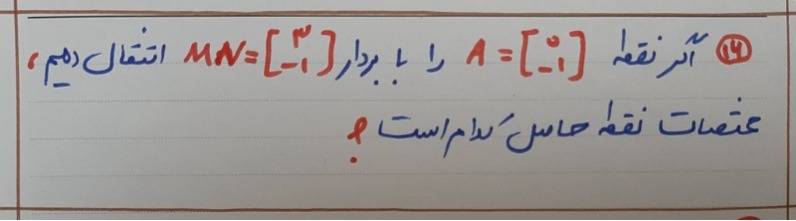 ۱۴) اگر نقطه A = [۰ −۱] را با بردار MN = [۳ −۱] انتقال دهیم،
مختصات نقطه حاصل کدام است ؟